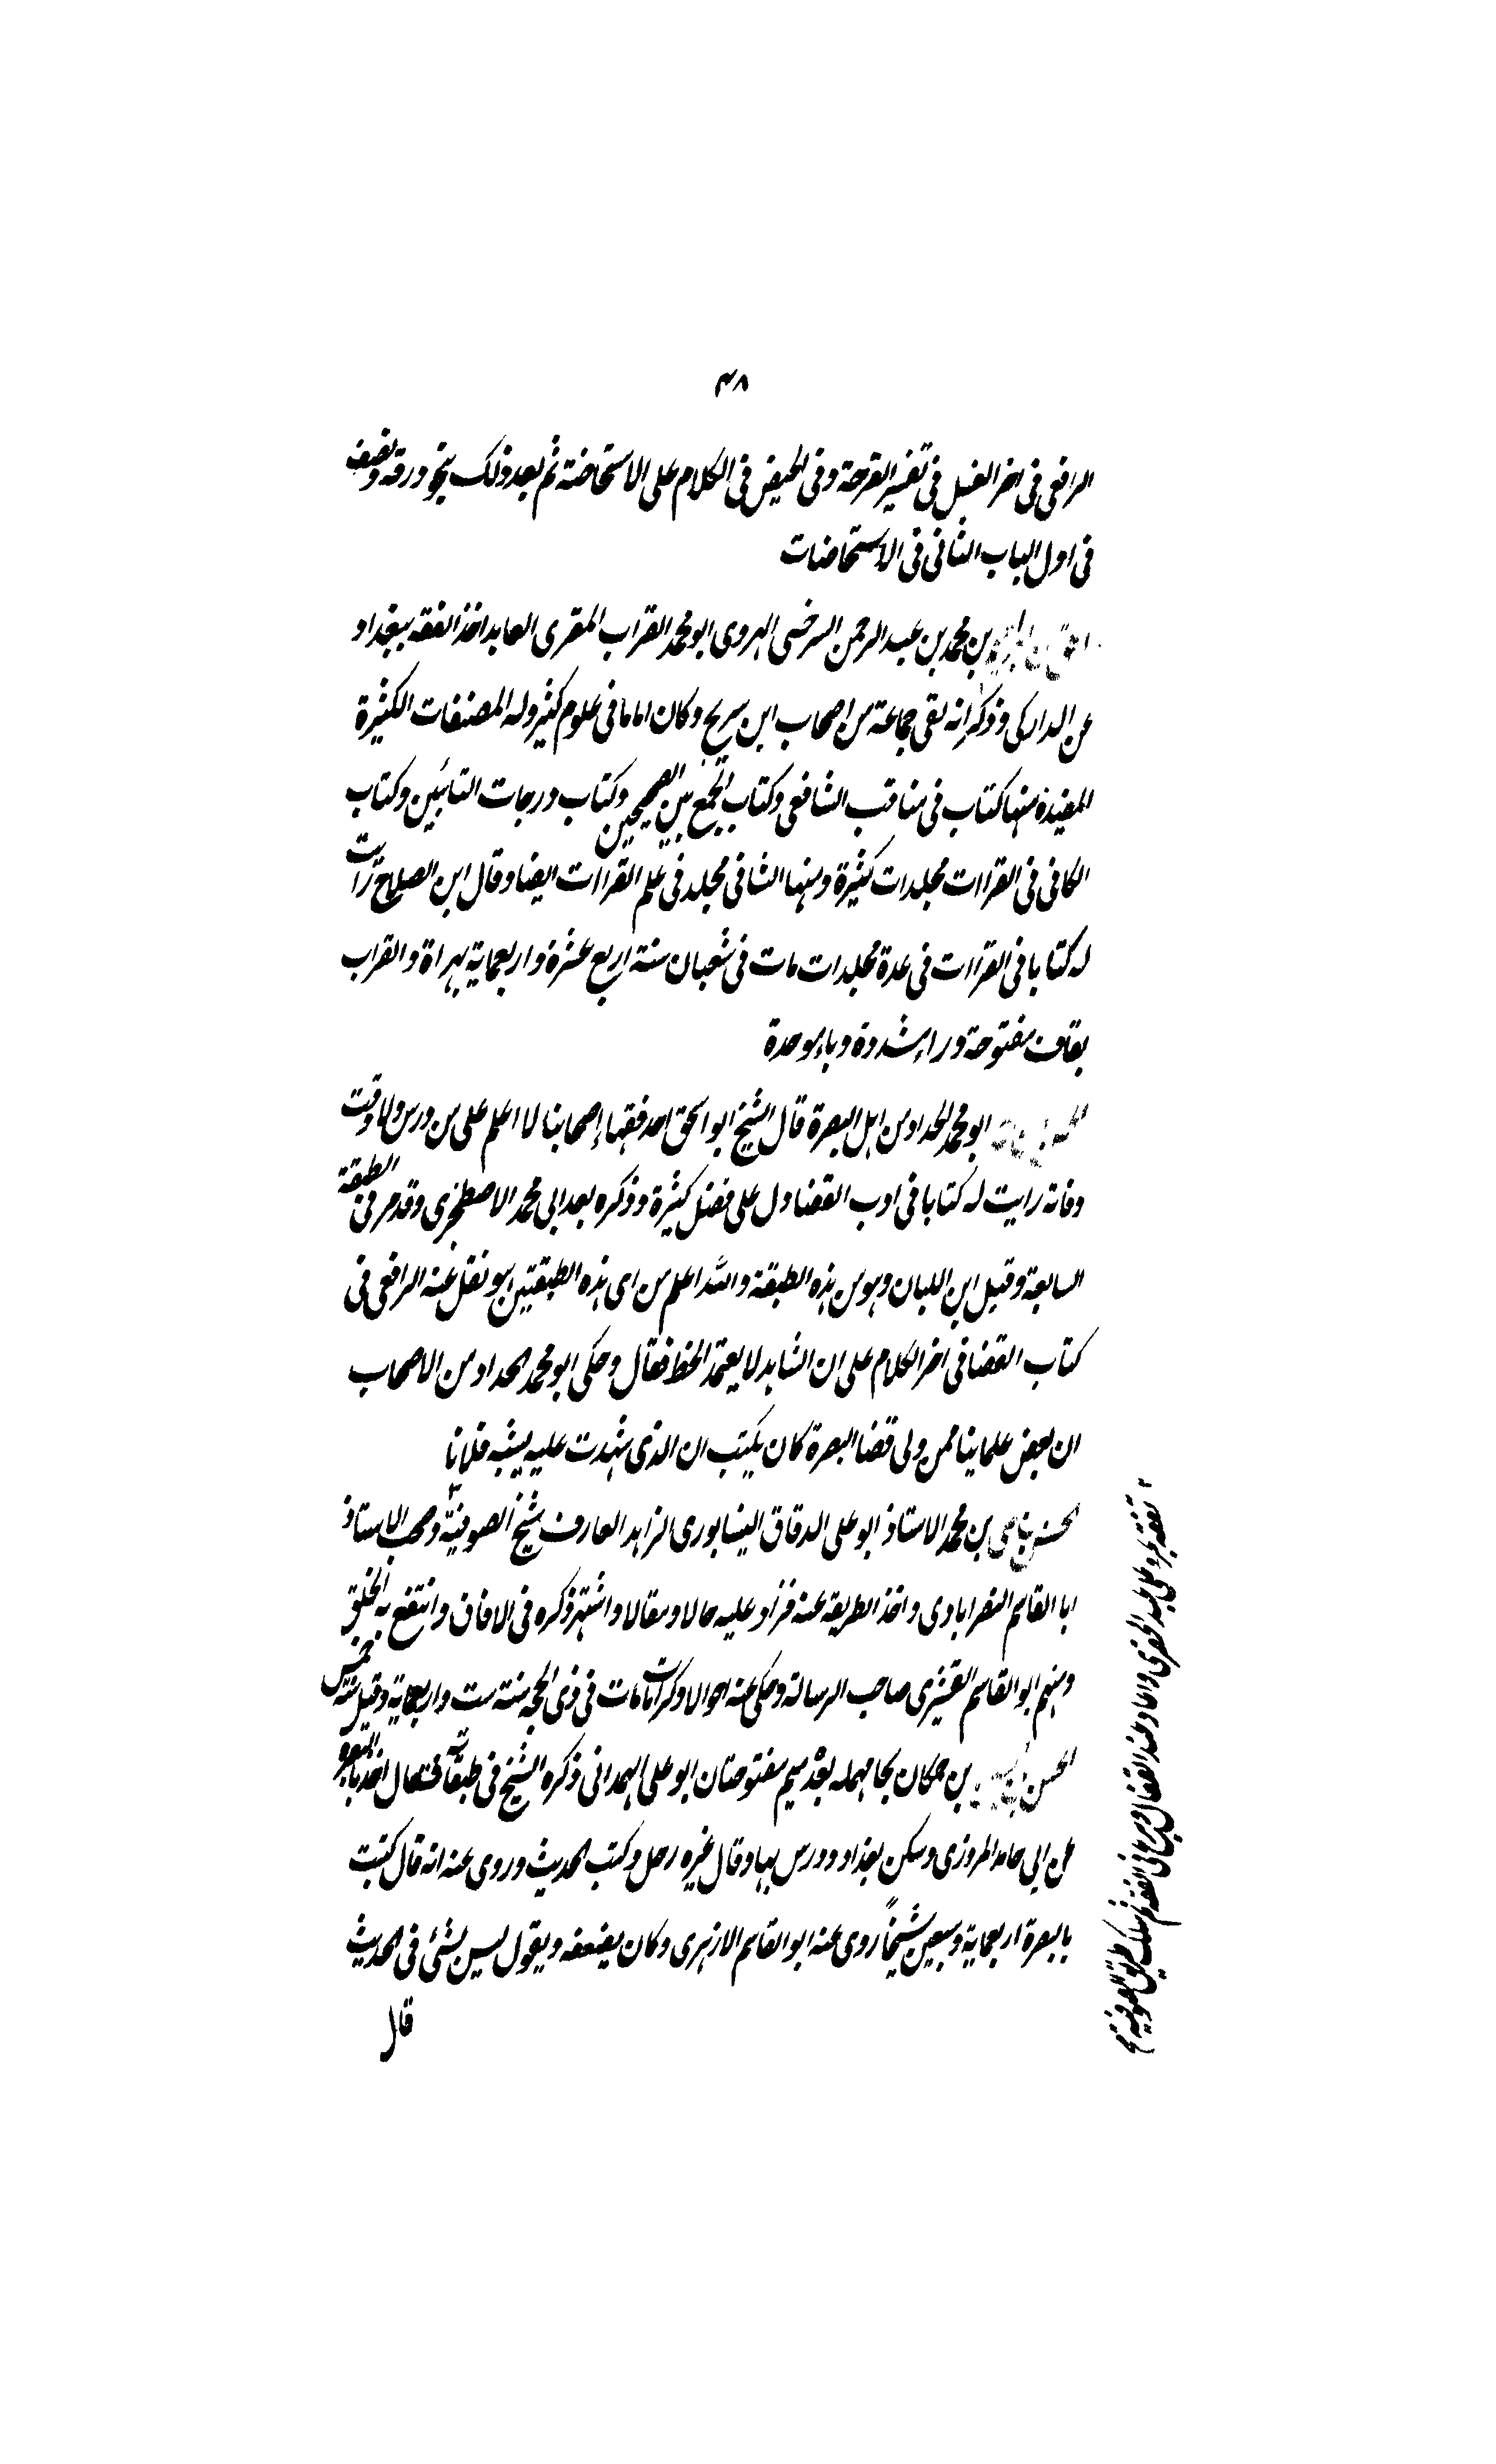 ٣٨
الرافعى فى اخر الغسل فى تفسير القرحة وفى الحيض فى الكلام على الاستحاضة ثم بعد ذلك بنحو ورقة ونصف
فى اول الباب الثانى فى الاستحاضات
بن محمد بن عبد الرحمن السرخسى الهروى ابو محمد القراب المقرى العابد اخذ الفقه ببغداد
عن الداركى وذكر انه لقى جماعة من اصحاب ابن سريج وكان اماما فى علوم كثير وله المصنفات الكثيرة
المفيدة منها كتاب فى مناقب الشافعى وكتاب الجمع بين الصحيحين وكتاب درجات التائبين وكتاب
الكافى فى القراات مجلدات كثيرة ومنها الشافى مجلد فى علم القراات ايضا وقال ابن الصلاح رايت
له كتابا فى القراات فى عدة مجلدات مات فى شعبان سنة اربع عشرة واربعماية بهراة والقراب
بقاف مفتوحة وراء مشددة وباء موحدة
ابو محمد الحداد من اهل البصرة قال الشيخ ابو اسحق احد فقهاء اصحابنا لا اعلم على من درس ولا وقت
وفاته رايت له كتابا فى ادب القضا دل على فضل كثيرة وذكره بعد ابى محمد الاصطخرى وقد مر فى الطبقة
السابعة وقبل ابن اللبان وهو من هذه الطبقة والله اعلم من اى هذه الطبقتين هو نقل عنه الرافعى فى
كتاب القضا فى اخر الكلام على ان الشاهد لا يعتمد الخط فقال وحكى ابو محمد الحداد من الاصحاب
ان بعض علماينا ممن ولى قضا البصرة كان يكتب ان الذى شهدت عليه يشبه فلانا
الحسن بن على بن محمد الاستاذ ابو على الدقاق النيسابورى الزاهد العارف شيخ الصوفية٢ وصحب الاستاذ
ابا القاسم النصرابادى واخذ الطريقة عنه فزاد عليه حالا ومقالا واشتهر ذكره فى الافاق وانتفع به الخلق
ومنهم ابو القاسم القشيرى صاحب الرسالة وحكى عنه احوالا وكرامات مات فى ذى الحجة سنة ست واربعماية وقيل سنة خمس
الحسن بن الحسين بن حمكان بحا مهملة بعد ميم مفتوحتان ابو على الهمدانى ذكره الشيخ فى طبقاته فقال اخذ بالبصرة
عن ابى حامد المروزى وسكن بغداد ودرس بها وقال غيره رحل وكتب الحديث وروى عنه انه قال كتبت
بالبصرة اربعماية وسبعين شيخاً روى عنه ابو القاسم الازهرى وكان يضعفه ويقول ليس بشئى فى الحديث
قال
٢ تفقه بمرو على الخضرى واعاد عند القفال وبرع فى الفقه ثم سلك طريق الصوفية